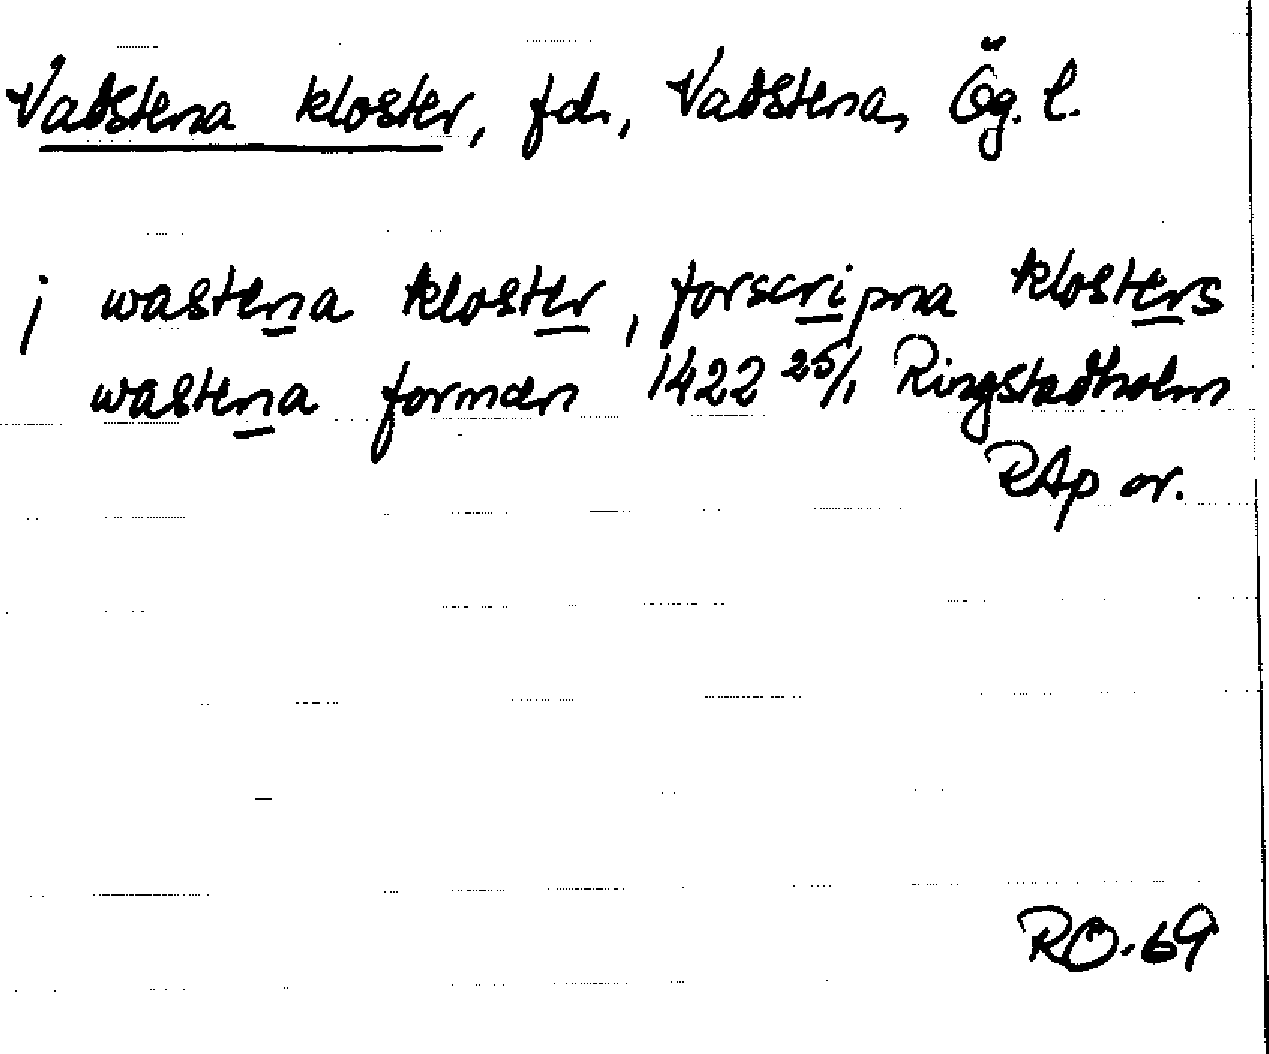 Vadstena kloster, fd., Vadstena, Ög. l.
j wastena kloster, forscripna klosters
wastena forman 1422 25/1 Ringstadholm
RAp or.
RO.69